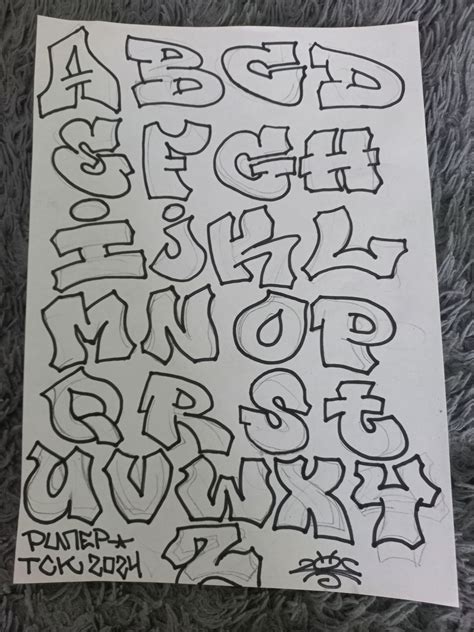 A B C D
E F G H
I j K L
M N O P
Q R S t
U V W X Y
Z
TCK 2024